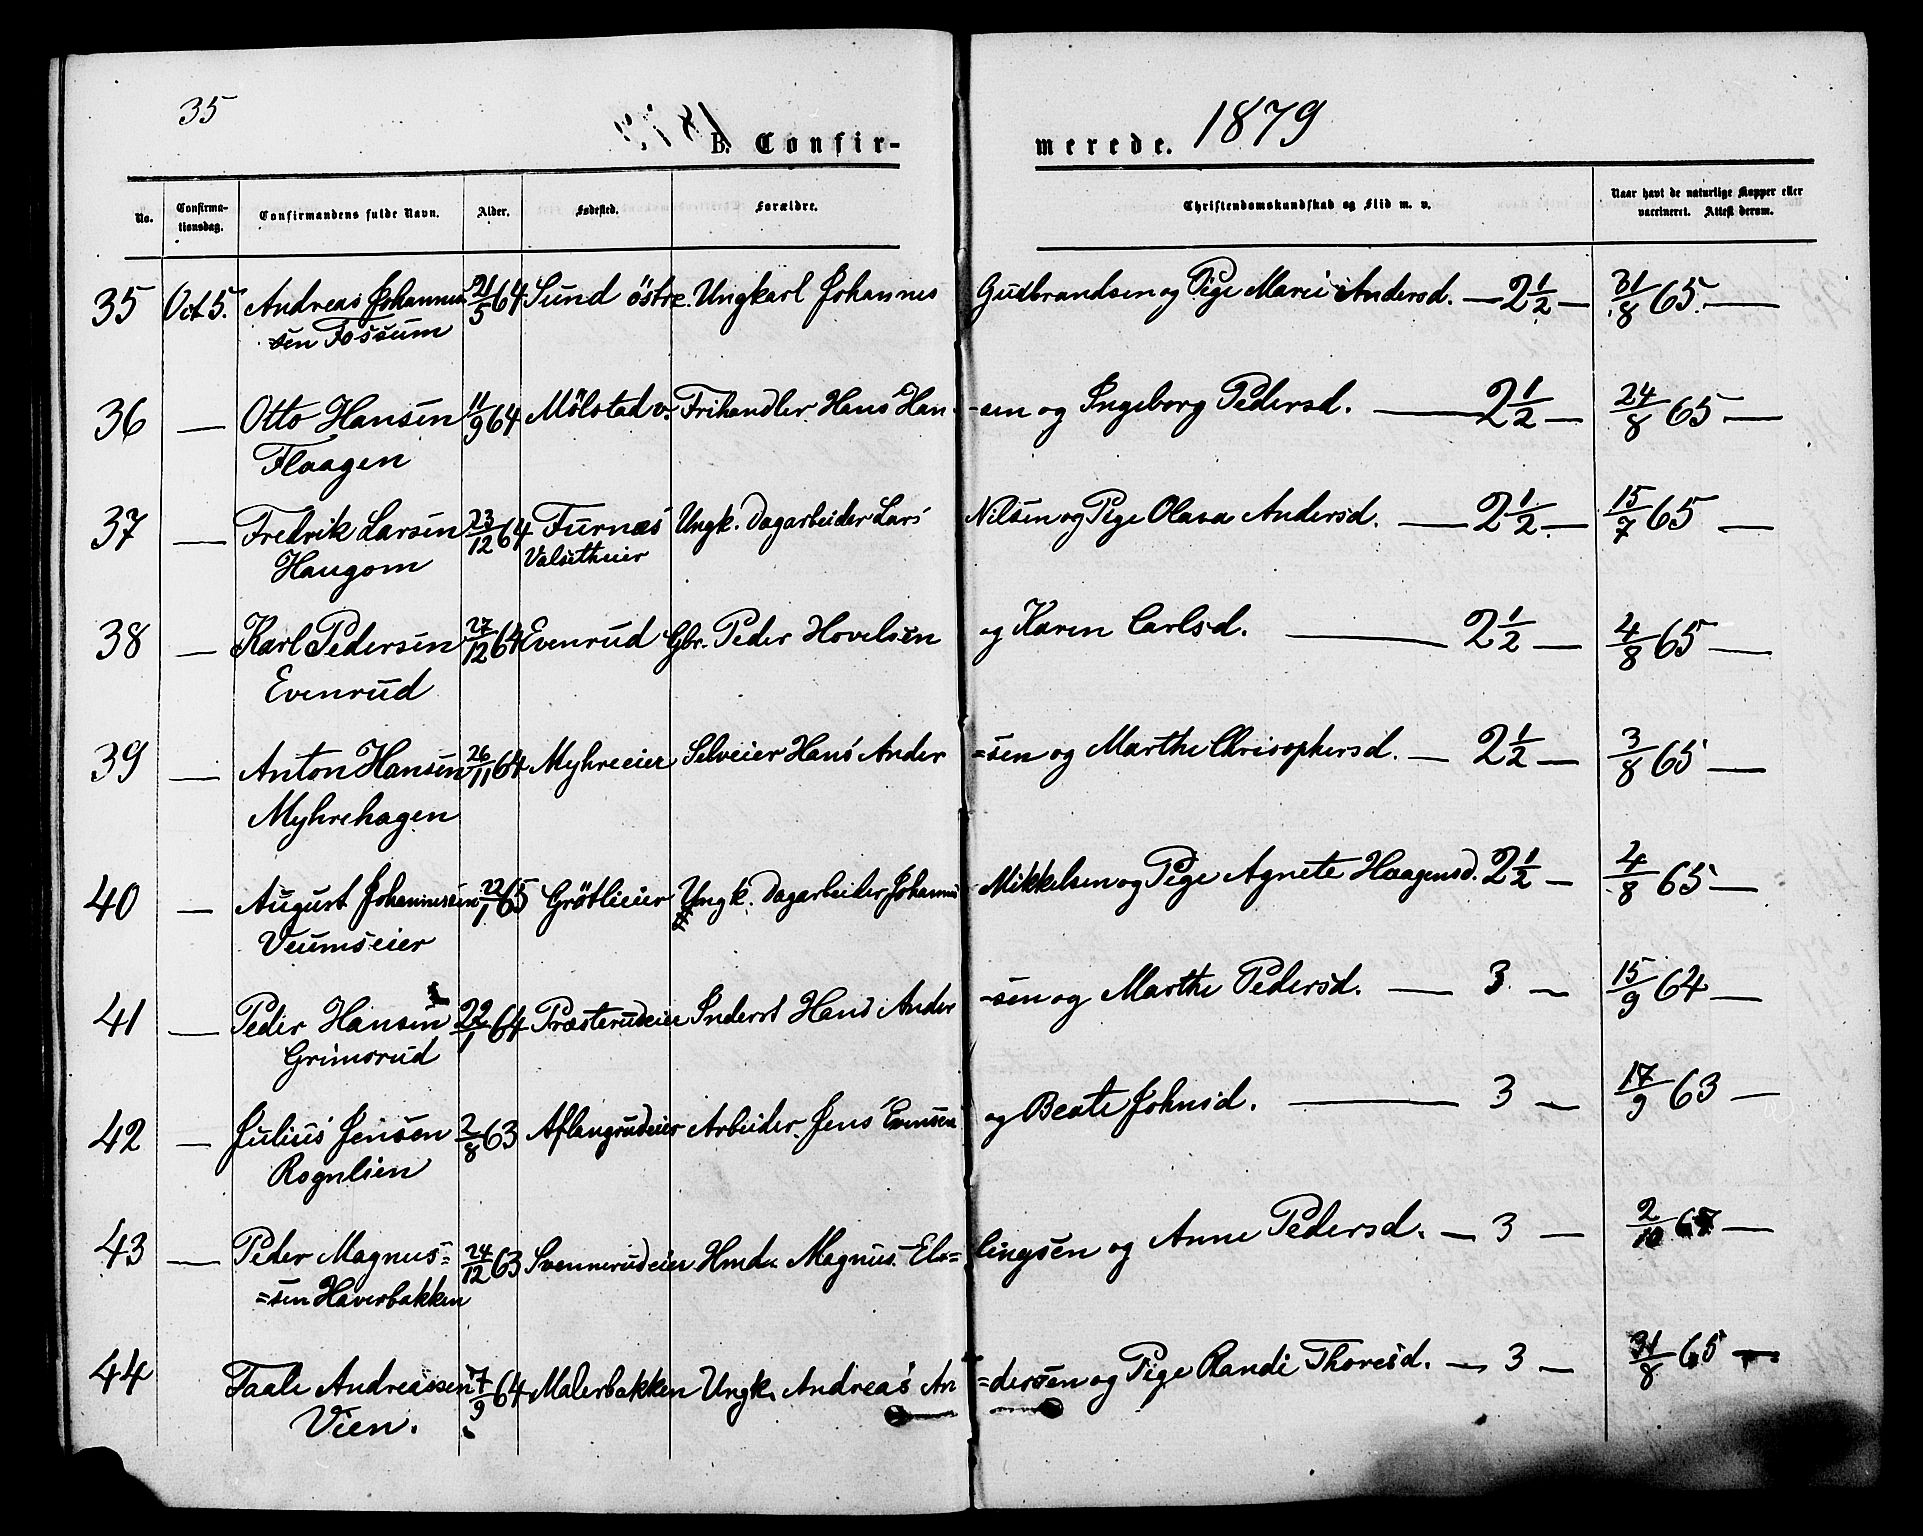 35
B. Confir-
merede. 1879
No. Confirma- tionsdag. Confirmandens fulde Navn. Alder. Fødested. Forældre. Christendomskundskab og Flid m. v. Naar havt de naturlige Kopper eller vaccineret. Attest derom.
35 Oct 5. Andreas Johannes 21/5 64 Sund östre. Ungkarl Johannes Gudbrandsen og Pige Marie Andersd. — 2 1/2 — 31/8 65. —
sen Fossum
36 — Otto Hansen 11/9 64 Mölstad v. Frihandler Hans Han- -sen og Ingeborg Pedersd. — 2 1/2 — 24/8 65 —
Flaagen
37 — Fredrik Larsen 23/12 64 Furnæs Ungk. Dagarbeider Lars Nilsen og Pige Olava Andersd. — 2 1/2 — 15/7 65 —
Haugom Valsetheier
38 — Karl Pedersen 27/12 64 Evenrud Gbr. Peder Hovelsen og Karen Carlsd. — 2 1/2 — 4/8 65 —
Evenrud
39 — Anton Hansen 26/11 64 Myhreeier Selveier Hans Ander =sen og Marthe Chrisophersd. — 2 1/2 — 3/8 65 —
Myhrehagen
40 — August Johannesen 22/1 65 Grötlieier Ungk. Dagarbeider Johannes Mikkelsen og Pige Agnete Haagensd. 2 1/2 — 4/8 65 —
Veumseier
41 — Peder Hansen 22/1 64 Præsterudeier Inderst Hans Ander -sen og Marthe Pedersd. — 3 — 15/9 64 —
Grimsrud
42 — Julius Jensen 2/8 63 Aflangrudeier Arbeider Jens Evensen og Beate Johnsd. — 3 — 17/9 63 —
Rognlien
43 — Peder Magnus= 24/12 63 Svennerudeier Hmd. Magnus El= lingsen og Anne Pedersd. — 3 — 2/10 67 —
=sen Haverbakken
44 Taale Andreassen 7/9 64 Malerbakken Ungk. Andreas An =dersen og Pige Randi Thoresd. — 3 — 31/8 65 —
Vien.